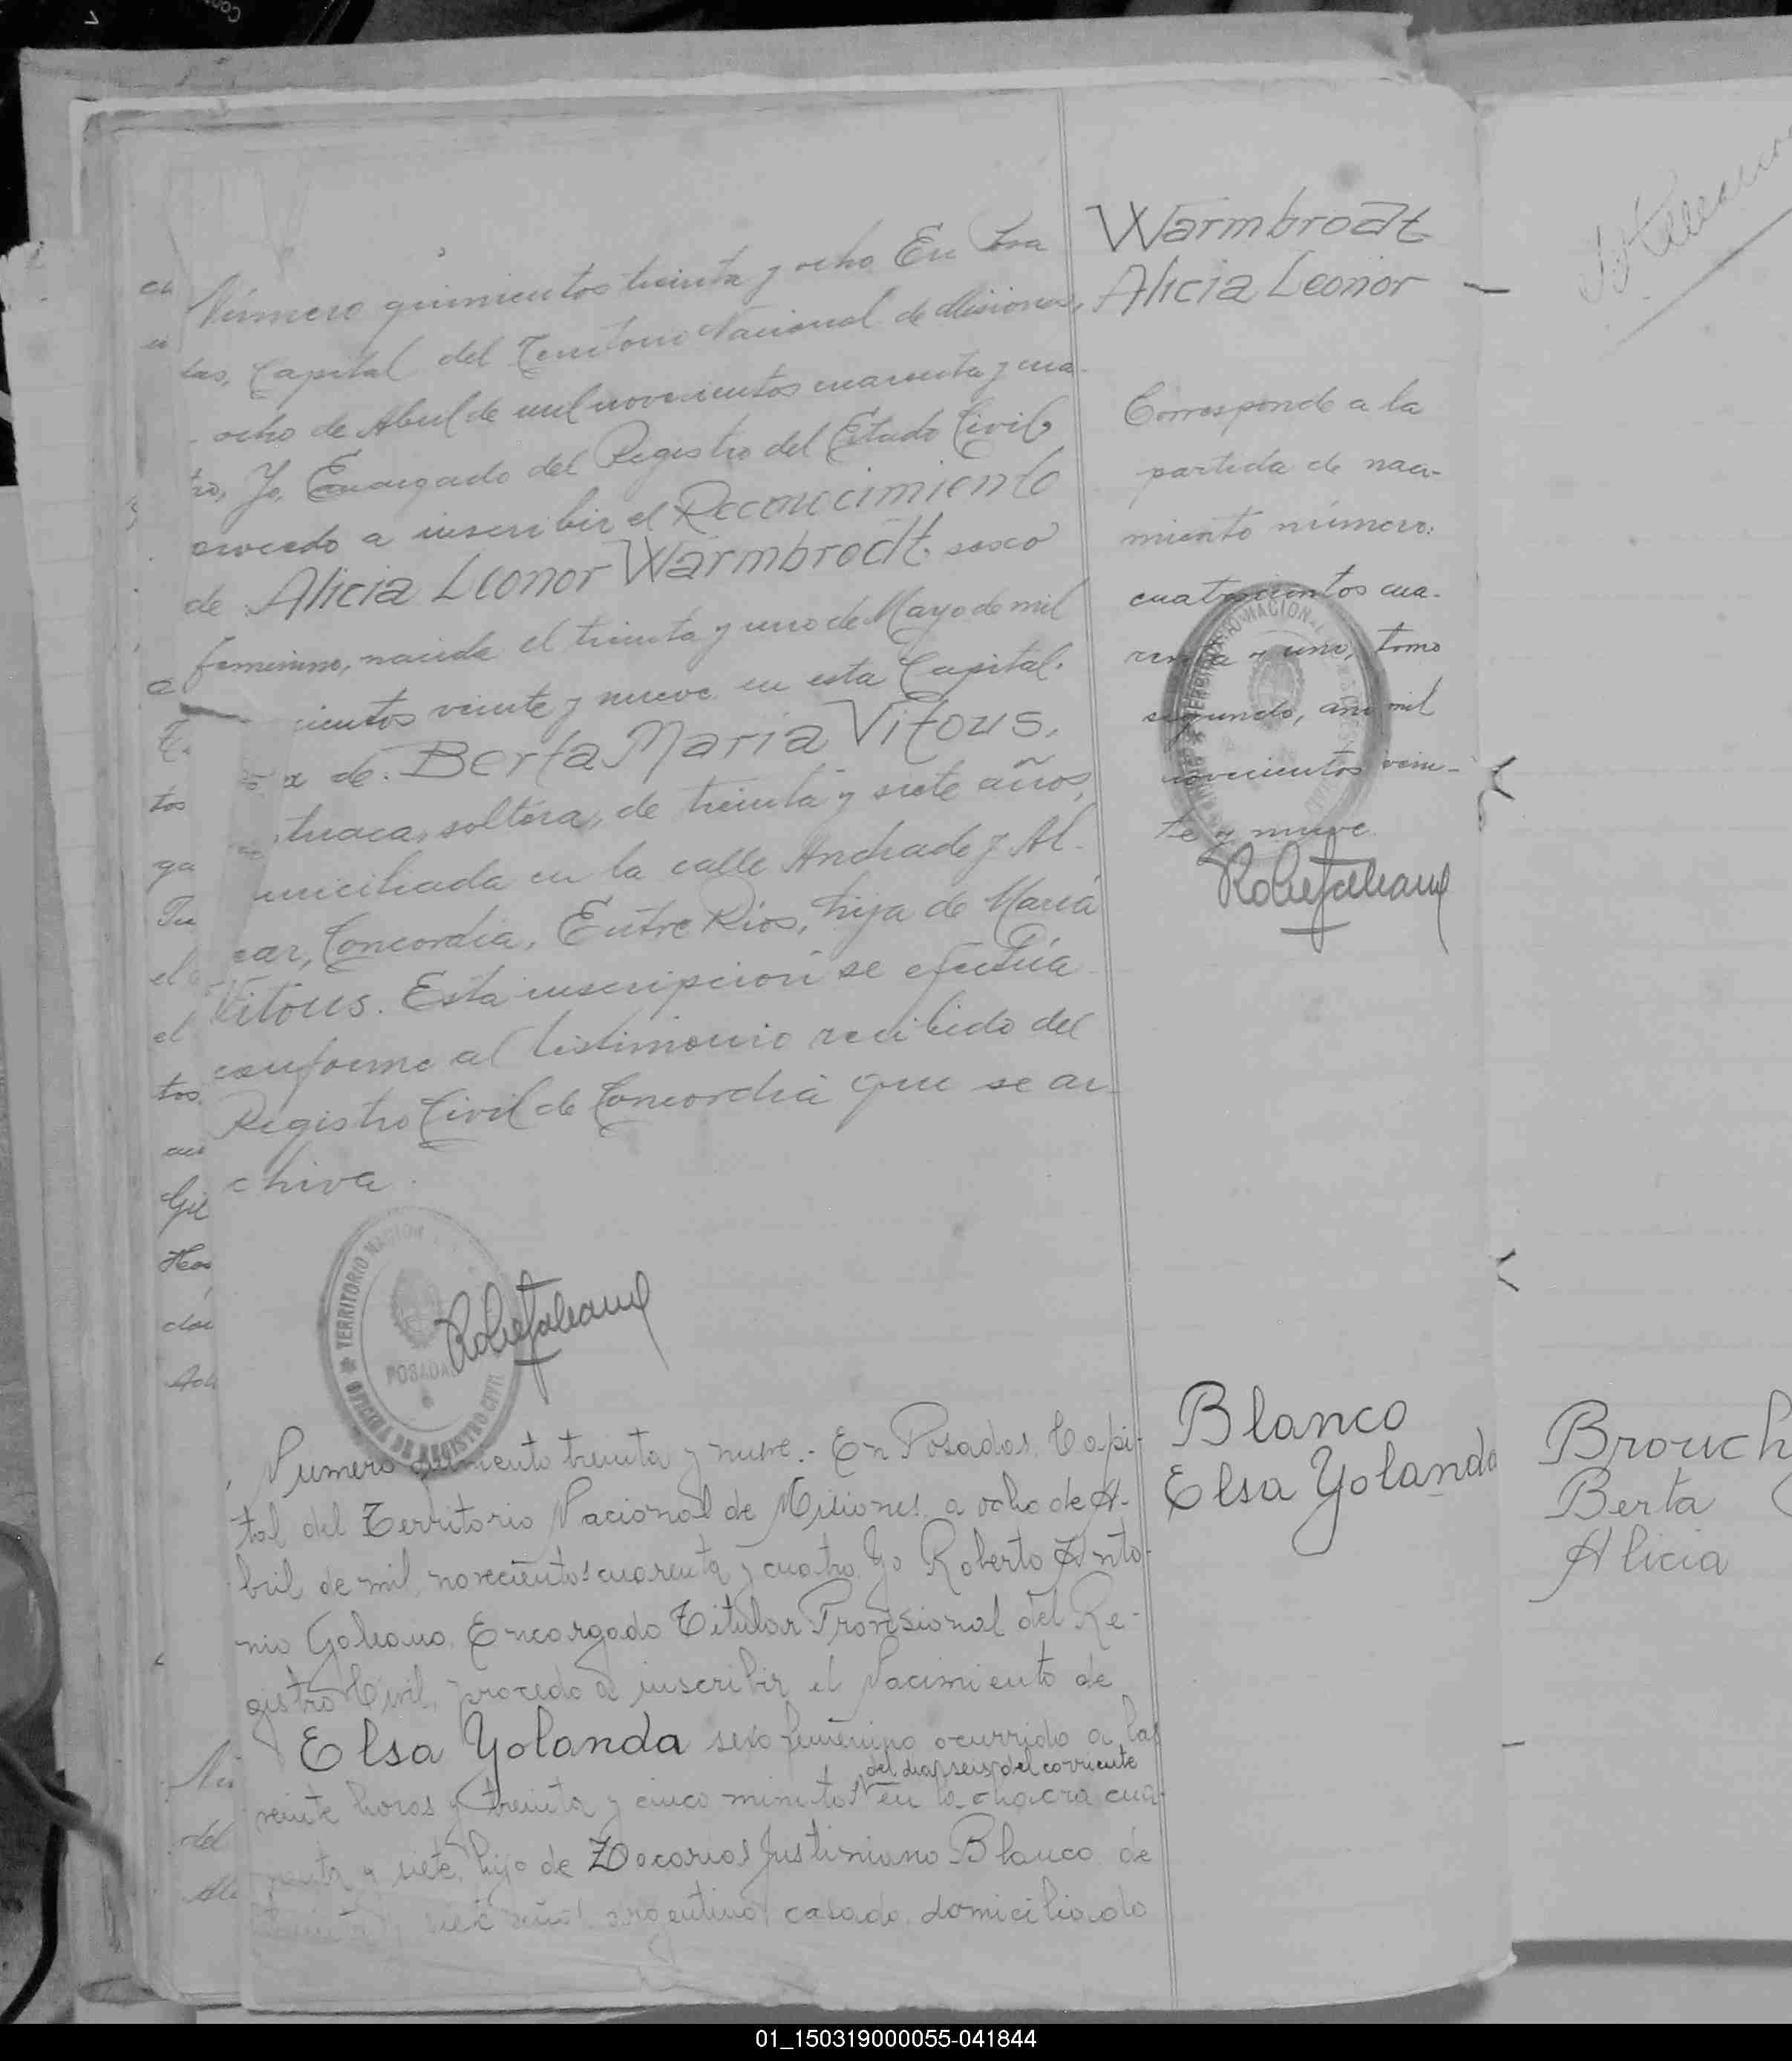 Número quinientos treinta y ocho En Posa
das, Capital del Territorio Nacional de Misiones,
ocho de Abril de mil novecientos cuarenta y cua-
tro, Yo, Encargado del Registro del Estado Civil,
procedo a inscribir el Reconocimiento
de Alicia Leonor Warmbrodt. sexo
femenino, nacida el treinta y uno de Mayo de mil
cientos veinte y nueve en esta Capital.
de. Berta Maria Vitous,
triaca, soltera, de treinta y siete años,
miciliada en la calle Andrade y Al-
ear, Concordia, Entre Rios, hija de Maria
Vitous. Esta inscripcion se efectúa
conforme al testimonio recibido del
Registro Civil de Concordia que se ar-
chiva.
TERRITORIO NACION
POSADAS
OFICINA DE REGISTRO CIVIL
Warmbrodt
Alicia Leonor
Corresponde a la
partida de naci-
miento número:
cuatrocientos cua-
renta y uno, tomo
segundo, año mil
novecientos vein-
te y nueve
Numero quinientos treinta y nueve.- En Posadas, Capi-
tal del Territorio Nacional de Misiones, a ocho de A-
bril de mil novecientos cuarenta y cuatro, Yo Roberto Anto-
nio Galeano, Encargado Titular Provisional del Re-
gistro Civil, procedo a inscribir el Nacimiento de
Elsa Yolanda sexo femenino ocurrido a las
del dia seis del corriente
veinte horas y treinta y cinco minutos en la chacra cua-
renta y siete, hijo de Zacarias Justiniano Blanco de
treinta y siete años, argentino, casado, domiciliado
Blanco
Elsa Yolanda
Brouch
Berta
Alicia
01_150319000055-041844